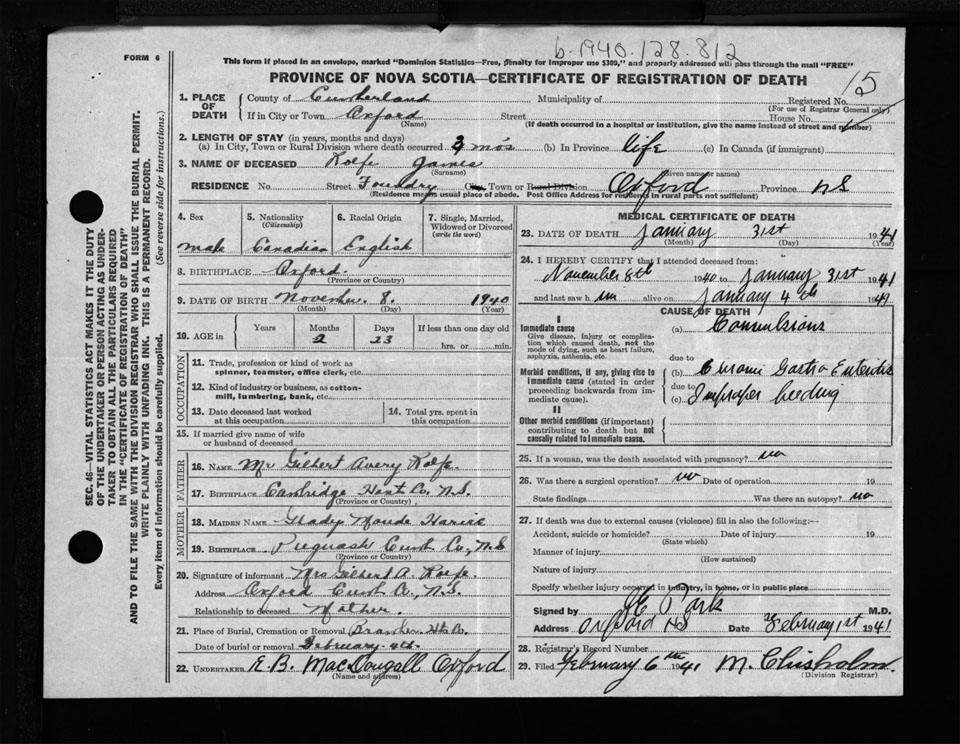 b.1940.128.812
FORM 6
This form if placed in an envelope, marked "Dominion Statistics—Free, penalty for improper use $300," and properly addressed will pass through the mail "FREE"
PROVINCE OF NOVA SCOTIA—CERTIFICATE OF REGISTRATION OF DEATH
15
1. PLACE OF DEATH County of Cumberland Municipality of Registered No.
(For use of Registrar General only)
If in City or Town Oxford Street House No.
(Name) (If death occurred in a hospital or institution, give the name instead of street and number)
2. LENGTH OF STAY (in years, months and days)
(a) In City, Town or Rural Division where death occurred 3 mos (b) In Province life (c) In Canada (if immigrant)
3. NAME OF DECEASED Rolfe James
(Surname) (Given name or names)
RESIDENCE No. Street Foundry City, Town or Rural Division Oxford Province NS
(Residence means usual place of abode. Post Office Address for residents in rural parts not sufficient)
4. Sex 5. Nationality (Citizenship) 6. Racial Origin 7. Single, Married, Widowed or Divorced (write the word)
male Canadian English
8. BIRTHPLACE Oxford.
(Province or Country)
9. DATE OF BIRTH November 8. 1940
(Month) (Day) (Year)
10. AGE in Years Months Days If less than one day old
2 23 hrs. or min.
OCCUPATION
11. Trade, profession or kind of work as spinner, teamster, office clerk, etc.
12. Kind of industry or business, as cotton-mill, lumbering, bank, etc.
13. Date deceased last worked at this occupation 14. Total yrs. spent in this occupation
15. If married give name of wife or husband of deceased
FATHER
16. NAME Mr Gilbert Avery Rolfe.
17. BIRTHPLACE Cambridge Hant Co. N.S.
(Province or Country)
MOTHER
18. MAIDEN NAME Glady Maude
19. BIRTHPLACE Pugwash Cumb Co, N.S
(Province or Country)
20. Signature of informant Mrs Gilbert A. Rolfe.
Address Oxford Cumb Co, N.S.
Relationship to deceased Mother.
21. Place of Burial, Cremation or Removal
Date of burial or removal February 4th.
22. UNDERTAKER E.B. MacDougall Oxford
(Name and address)
MEDICAL CERTIFICATE OF DEATH
23. DATE OF DEATH January 31st 1941
(Month) (Day) (Year)
24. I HEREBY CERTIFY that I attended deceased from:
November 8th 1940 to January 31st 1941
and last saw h im alive on January 4th 1941
CAUSE OF DEATH
I
Immediate cause
Give disease, injury or complication which caused death, not the mode of dying, such as heart failure, asphyxia, asthenia, etc.
(a) Convulsions
due to
Morbid conditions, if any, giving rise to immediate cause (stated in order proceeding backwards from immediate cause).
(b) Gastro Enteritis
due to
(c) Improper feeding
II
Other morbid conditions (if important) contributing to death but not causally related to immediate cause.
25. If a woman, was the death associated with pregnancy? no
26. Was there a surgical operation? no Date of operation 19
State findings Was there an autopsy? no
27. If death was due to external causes (violence) fill in also the following:—
Accident, suicide or homicide? Date of injury 19
(State which)
Manner of injury
(How sustained)
Nature of injury
Specify whether injury occurred in industry, in home, or in public place
Signed by Park M.D.
Address Oxford NS Date February 1st 1941
28. Registrar's Record Number
29. Filed February 6th 1941 M. Chisholm
(Division Registrar)
SEC. 46—VITAL STATISTICS ACT MAKES IT THE DUTY
OF THE UNDERTAKER OR PERSON ACTING AS UNDER-
TAKER TO OBTAIN ALL THE PARTICULARS REQUIRED
IN THE "CERTIFICATE OF REGISTRATION OF DEATH"
AND TO FILE THE SAME WITH THE DIVISION REGISTRAR WHO SHALL ISSUE THE BURIAL PERMIT.
WRITE PLAINLY WITH UNFADING INK. THIS IS A PERMANENT RECORD.
Every item of information should be carefully supplied. (See reverse side for instructions.)